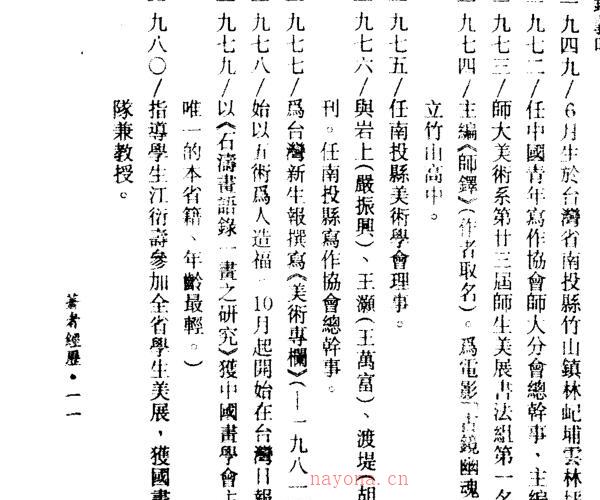 一九四九/6月生於台灣省南投縣竹山鎮林屺埔雲林
一九七二/任中國青年寫作協會師大分會總幹事、主編
一九七三/師大美術系第廿三屆師生美展書法組第一名
一九七四/主編《師鐸》(作者取名)。爲電影『古鏡幽魂
立竹山高中。
一九七五/任南投縣美術學會理事。
一九七六/與岩上(嚴振興)、王灝(王萬富)、渡堤(胡
刊。任南投縣寫作協會總幹事。
一九七七/爲台灣新生報撰寫《美術專欄》(—一九八一
一九七八/始以五術爲人造福,10月起開始在台灣日報
一九七九/以《石濤畫語錄一畫之研究》獲中國畫學會
唯一的本省籍、年齡最輕。)
一九八〇/指導學生江衍壽參加全省學生美展,獲國畫
隊兼教授。
著者經歷•一一
nayona.cn